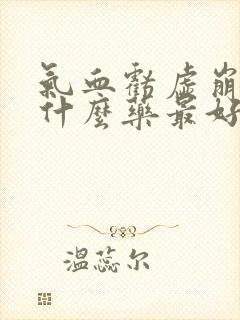 氣血虧虛崩
什麼藥最好
溫蕊尔